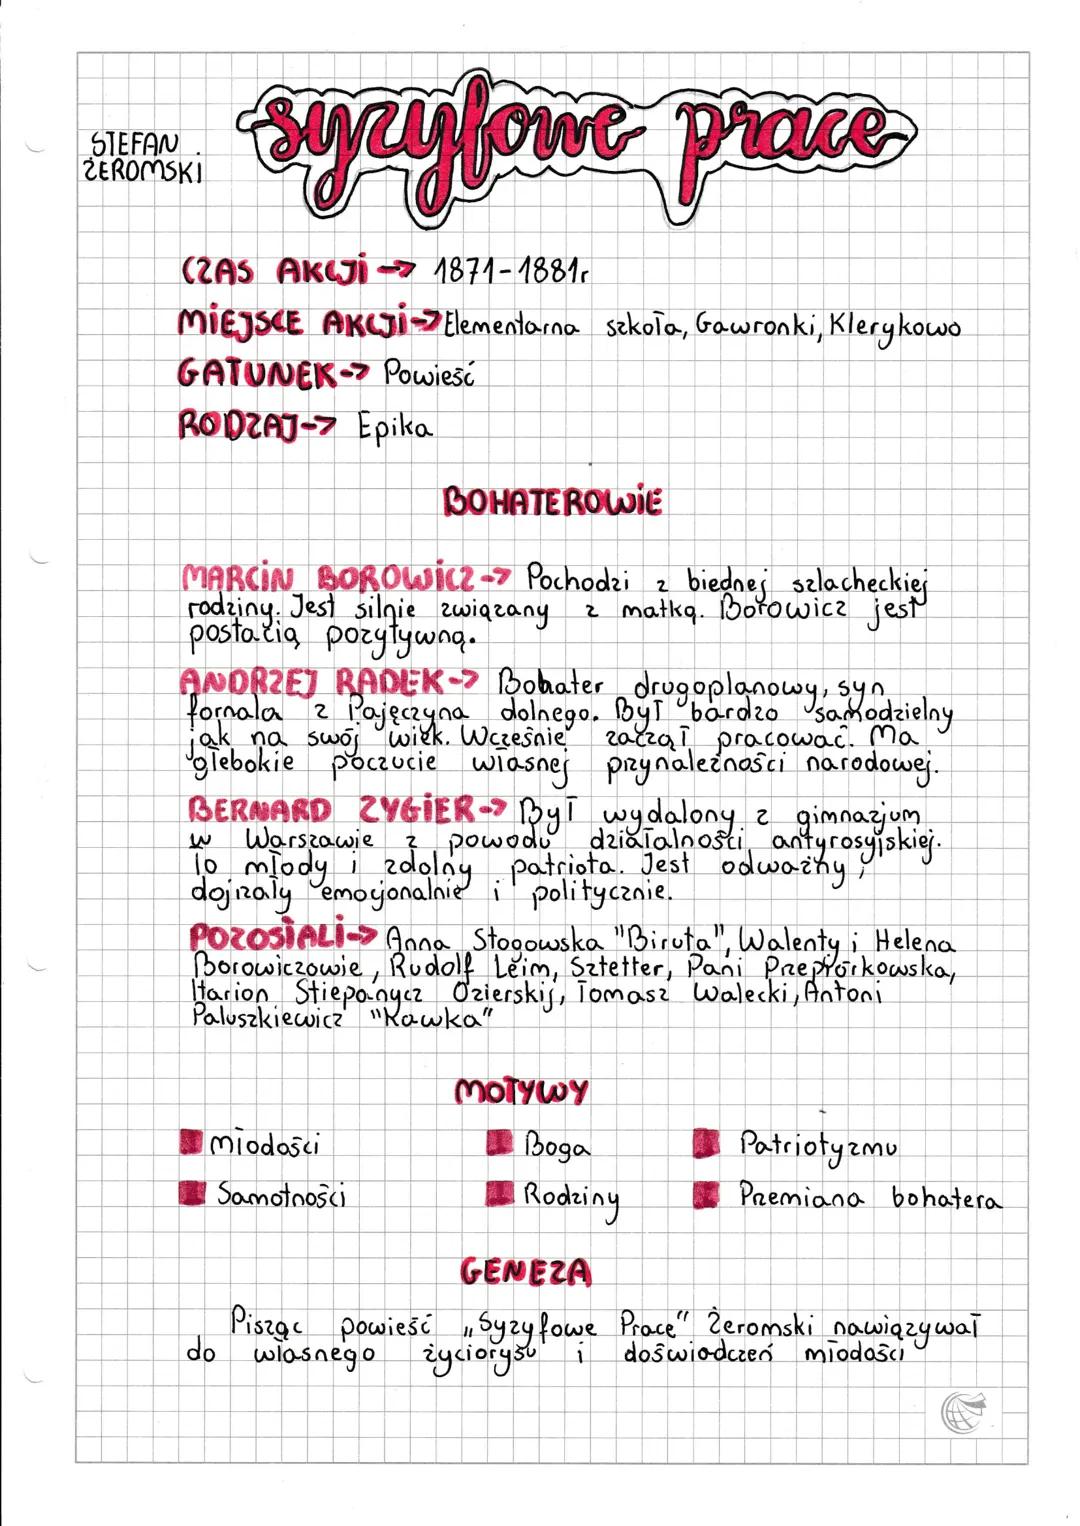 syzyfowe prace
STEFAN
ŻEROMSKI
CZAS AKCJI -> 1871-1881r
MIEJSCE AKCJI -> Elementarna szkoła, Gawronki, Klerykowo
GATUNEK -> Powieść
RODZAJ -> Epika
BOHATEROWIE
MARCIN BOROWICZ -> Pochodzi z biednej szlacheckiej
rodziny. Jest silnie związany z matką. Borowicz jest
postacią pozytywną.
ANDRZEJ RADEK -> Bohater drugoplanowy, syn
fornala z Pajęczyna dolnego. Był bardzo samodzielny
jak na swój wiek. Wcześnie zaczął pracować. Ma
głebokie poczucie własnej przynależności narodowej.
BERNARD ZYGIER -> Był wydalony z gimnazjum
w Warszawie z powodu działalności antyrosyjskiej.
To młody i zdolny patriota. Jest odważny,
dojrzały emocjonalnie i politycznie.
POZOSTALI -> Anna Stogowska "Biruta", Walenty i Helena
Borowiczowie, Rudolf Leim, Sztetter, Pani Przepiórkowska,
Iłarion Stiepanycz Ozierskij, Tomasz Walecki, Antoni
Paluszkiewicz "Kawka"
MOTYWY
młodości Boga Patriotyzmu
Samotności Rodziny Przemiana bohatera
GENEZA
Pisząc powieść „Syzyfowe Prace" Żeromski nawiązywał
do własnego życiorysu i doświadczeń młodości